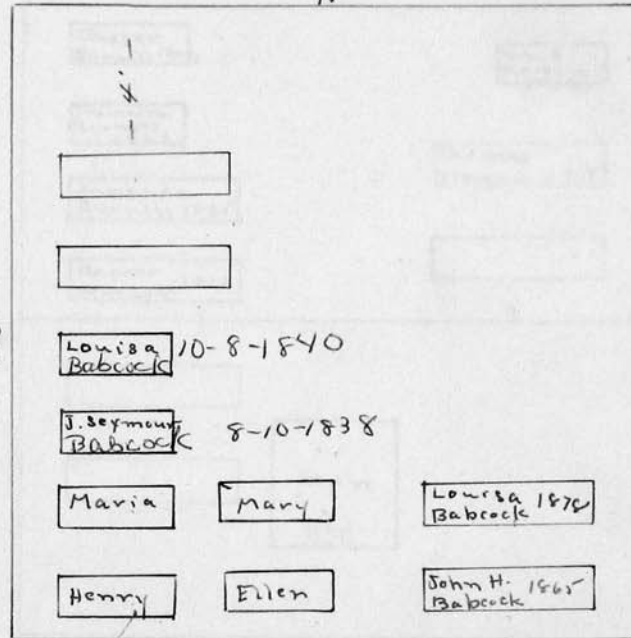 Louisa
Babcock 10-8-1840
J. Seymour
Babcock 8-10-1838
Maria Mary Louisa 1878
Babcock
Henry Ellen John H. 1865
Babcock